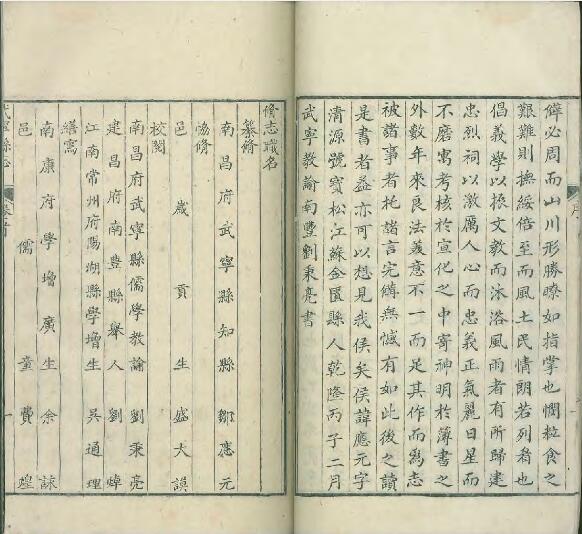 僻必周而山川形勝瞭如指掌也憫粒食之
艱難則撫綏倍至而風土民情朗若列眉也
倡義學以振文教而沐浴風雨者有所歸建
忠烈祠以激厲人心而忠義正氣麗日星而
不磨寓考核於宣化之中寄神明於簿書之
外數年來良法美意不一而足其作而爲志
被諸事者托諸言完備無憾有如此後之讀
是書者益亦可以想見我侯矣侯諱應元字
清源號寶松江蘇金匱縣人乾隆丙子二月
武寧教諭南豐劉秉亮書
脩志職名
纂脩
南昌府武寧縣知縣鄒應元
協脩
邑歲貢生盛大謨
校閱
南昌府武寧縣儒學教諭劉秉亮
建昌府南豐縣舉人劉焯
江南常州府陽湖縣學增生吳通理
繕寫
南康府學增廣生余諫
邑儒童費煌
武寧縣志
序
一